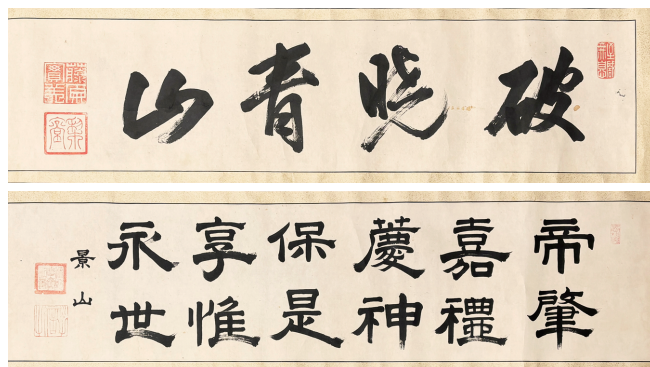 破晓青山
帝肇
嘉禮
慶神
保是
享惟
永世
景山